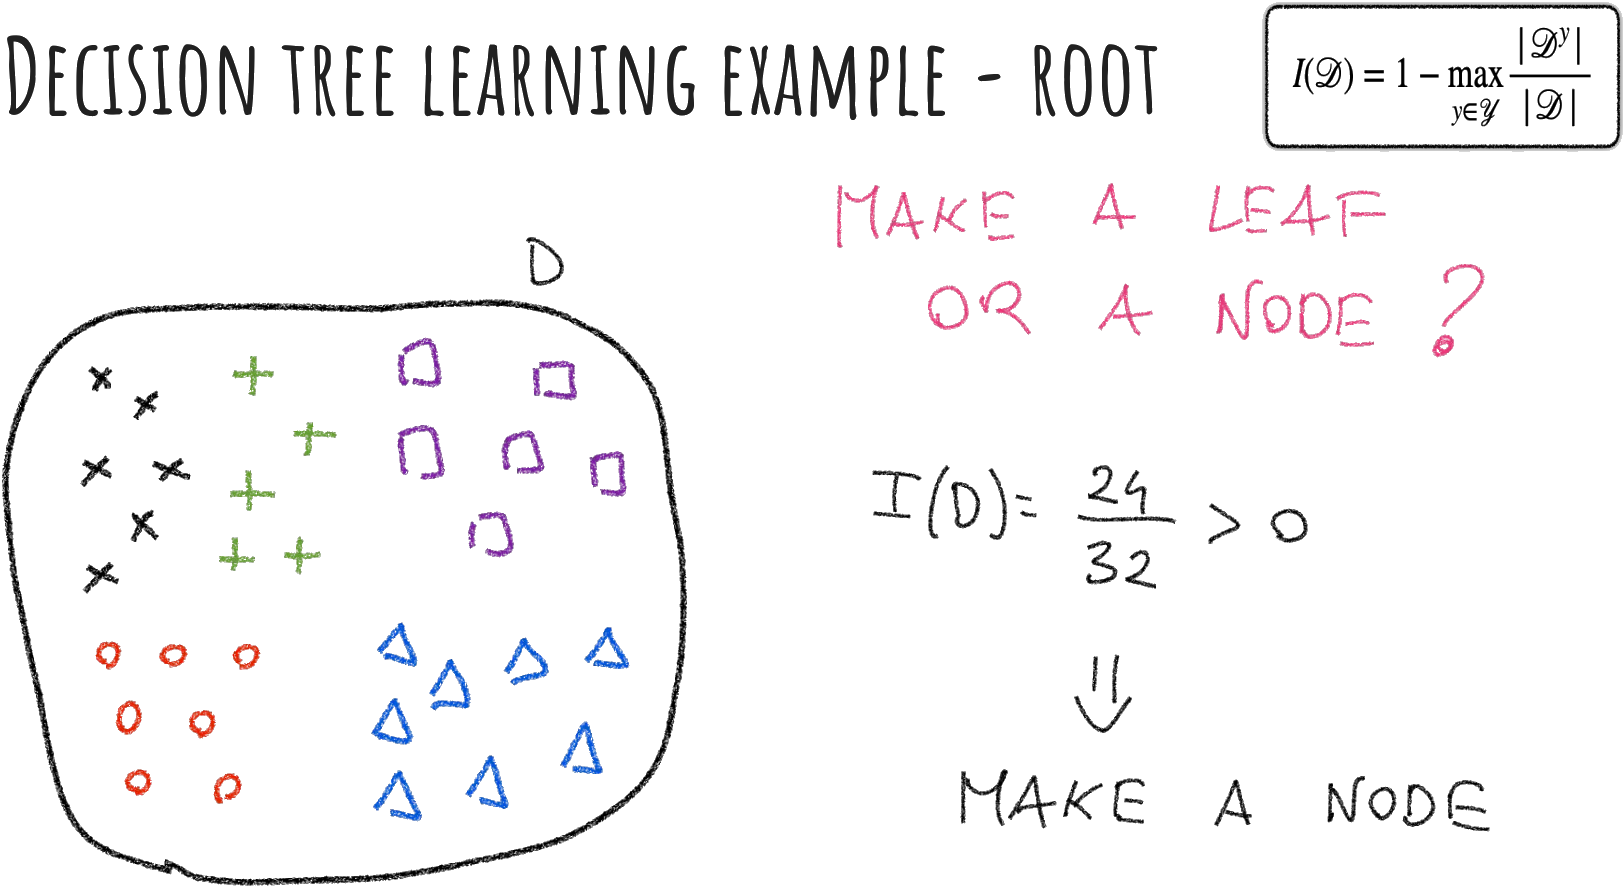 DECISION TREE LEARNING EXAMPLE - ROOT
I(𝒟) = 1 − max_{y∈𝒴} |𝒟^y| / |𝒟|
MAKE A LEAF
OR A NODE ?
D
I(D) = 24/32 > 0
⇓
MAKE A NODE